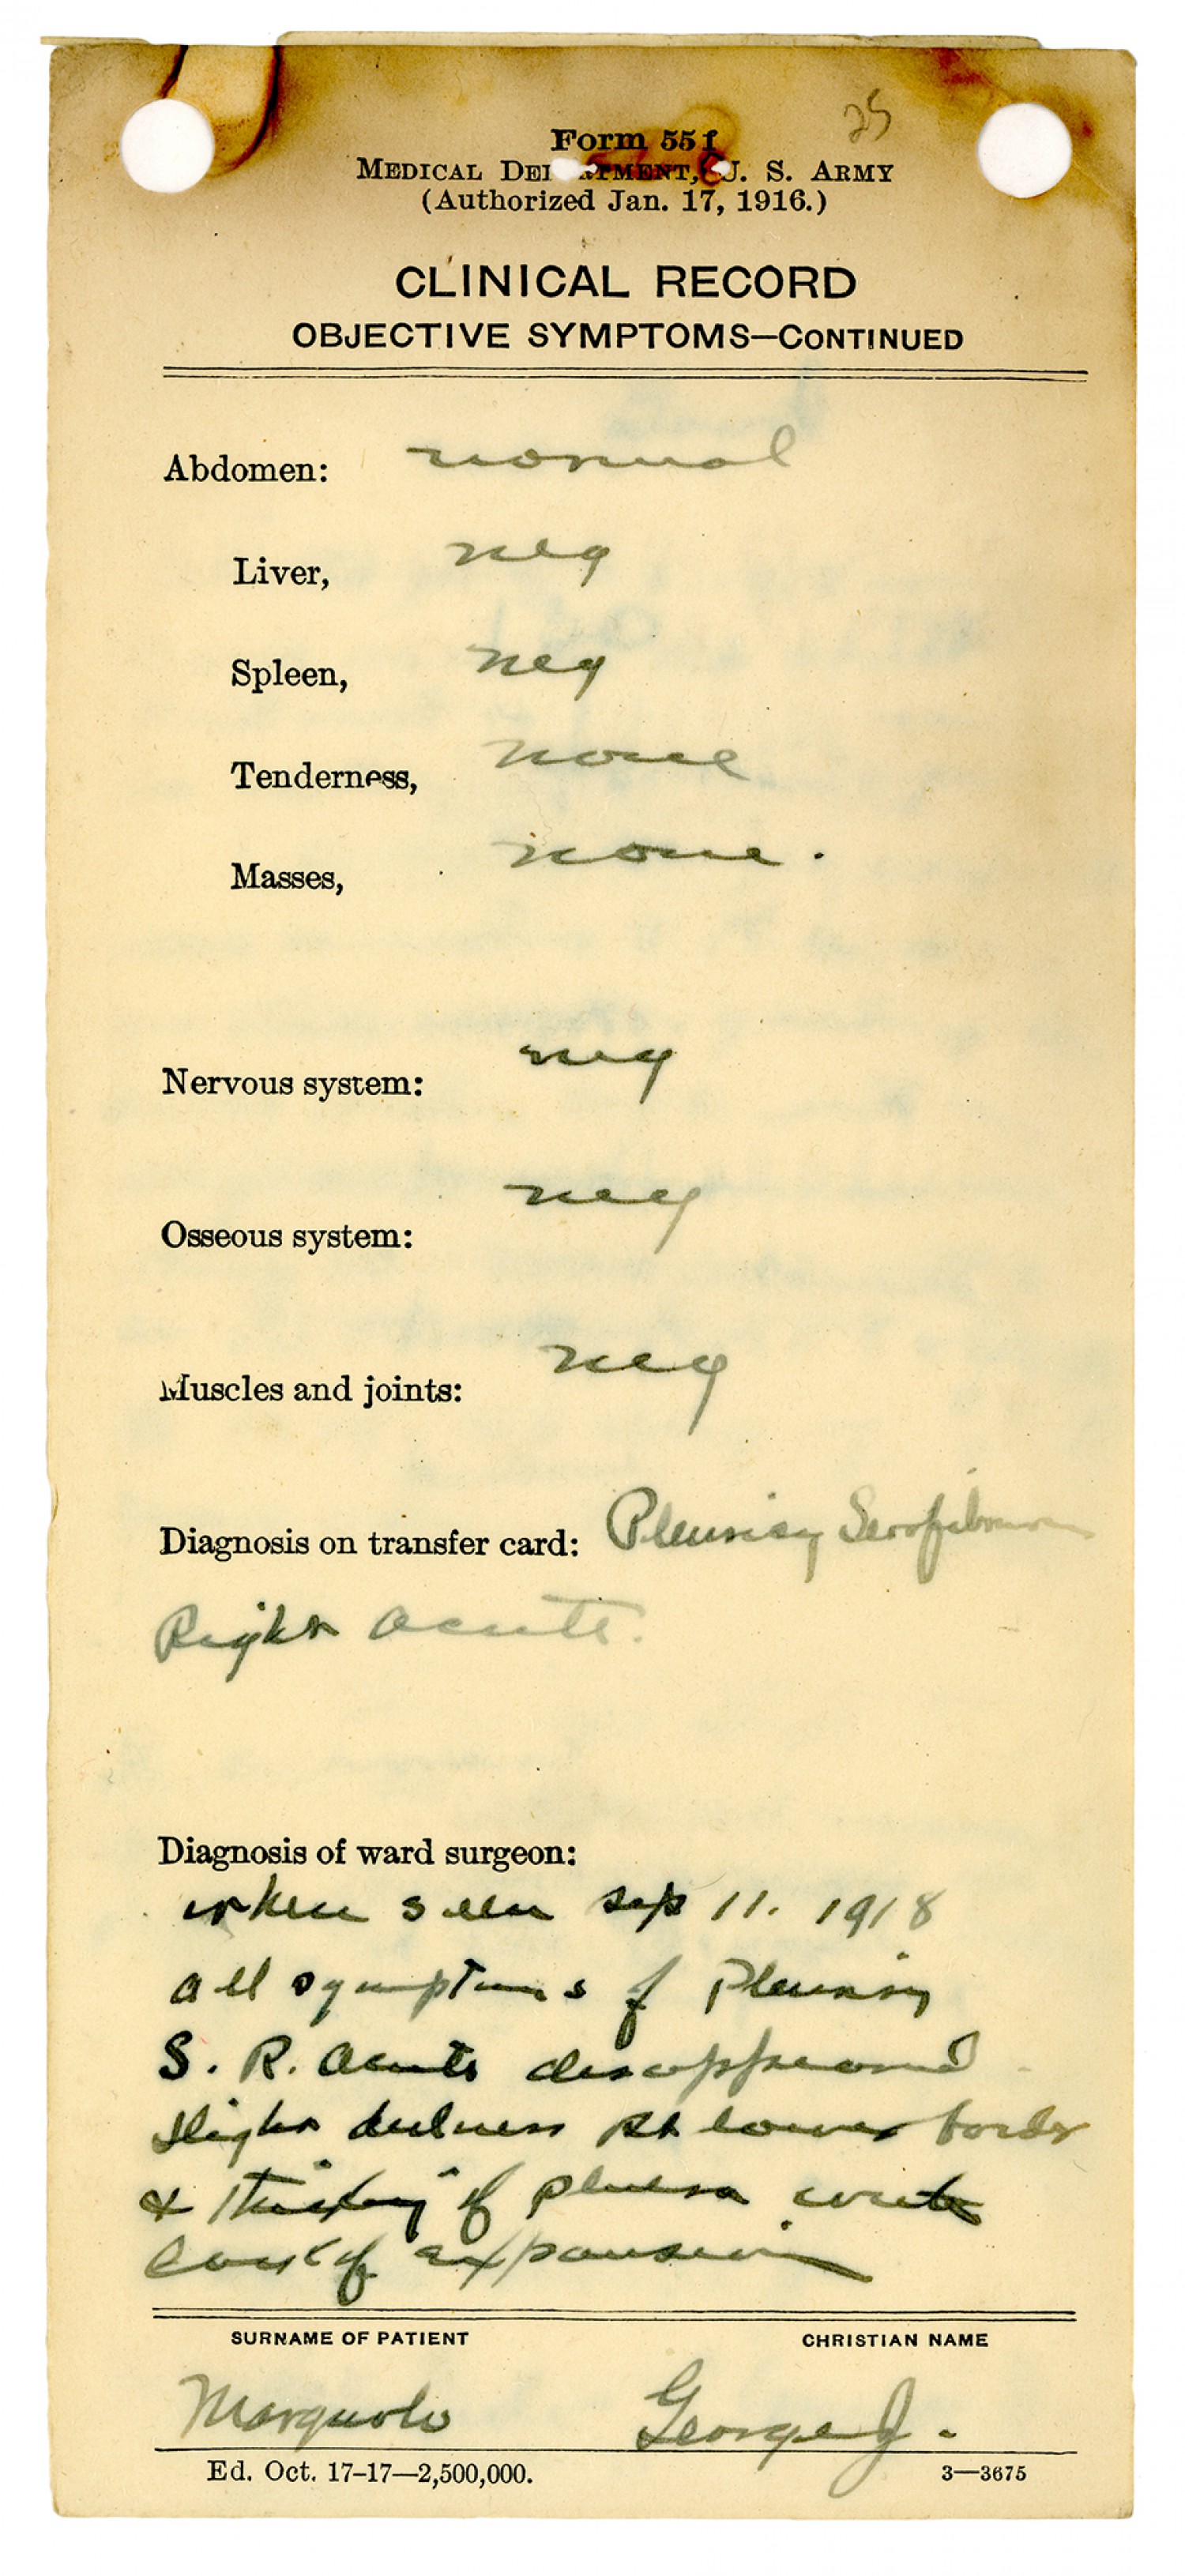 25
Form 55f
MEDICAL DEPARTMENT, U. S. ARMY
(Authorized Jan. 17, 1916.)
CLINICAL RECORD
OBJECTIVE SYMPTOMS—CONTINUED
Abdomen: normal
Liver, neg
Spleen, neg
Tenderness, none
Masses, none.
Nervous system: neg
Osseous system: neg
Muscles and joints: neg
Diagnosis on transfer card: Pleurisy Serofibrinous
Right acute.
Diagnosis of ward surgeon:
when seen Sep 11. 1918
all symptoms of Pleurisy
S. R. acute disappeared
slight dulness Rt lower border
& of pleura with
lack of expansion
SURNAME OF PATIENT CHRISTIAN NAME
George J.
Ed. Oct. 17-17—2,500,000. 3—3675